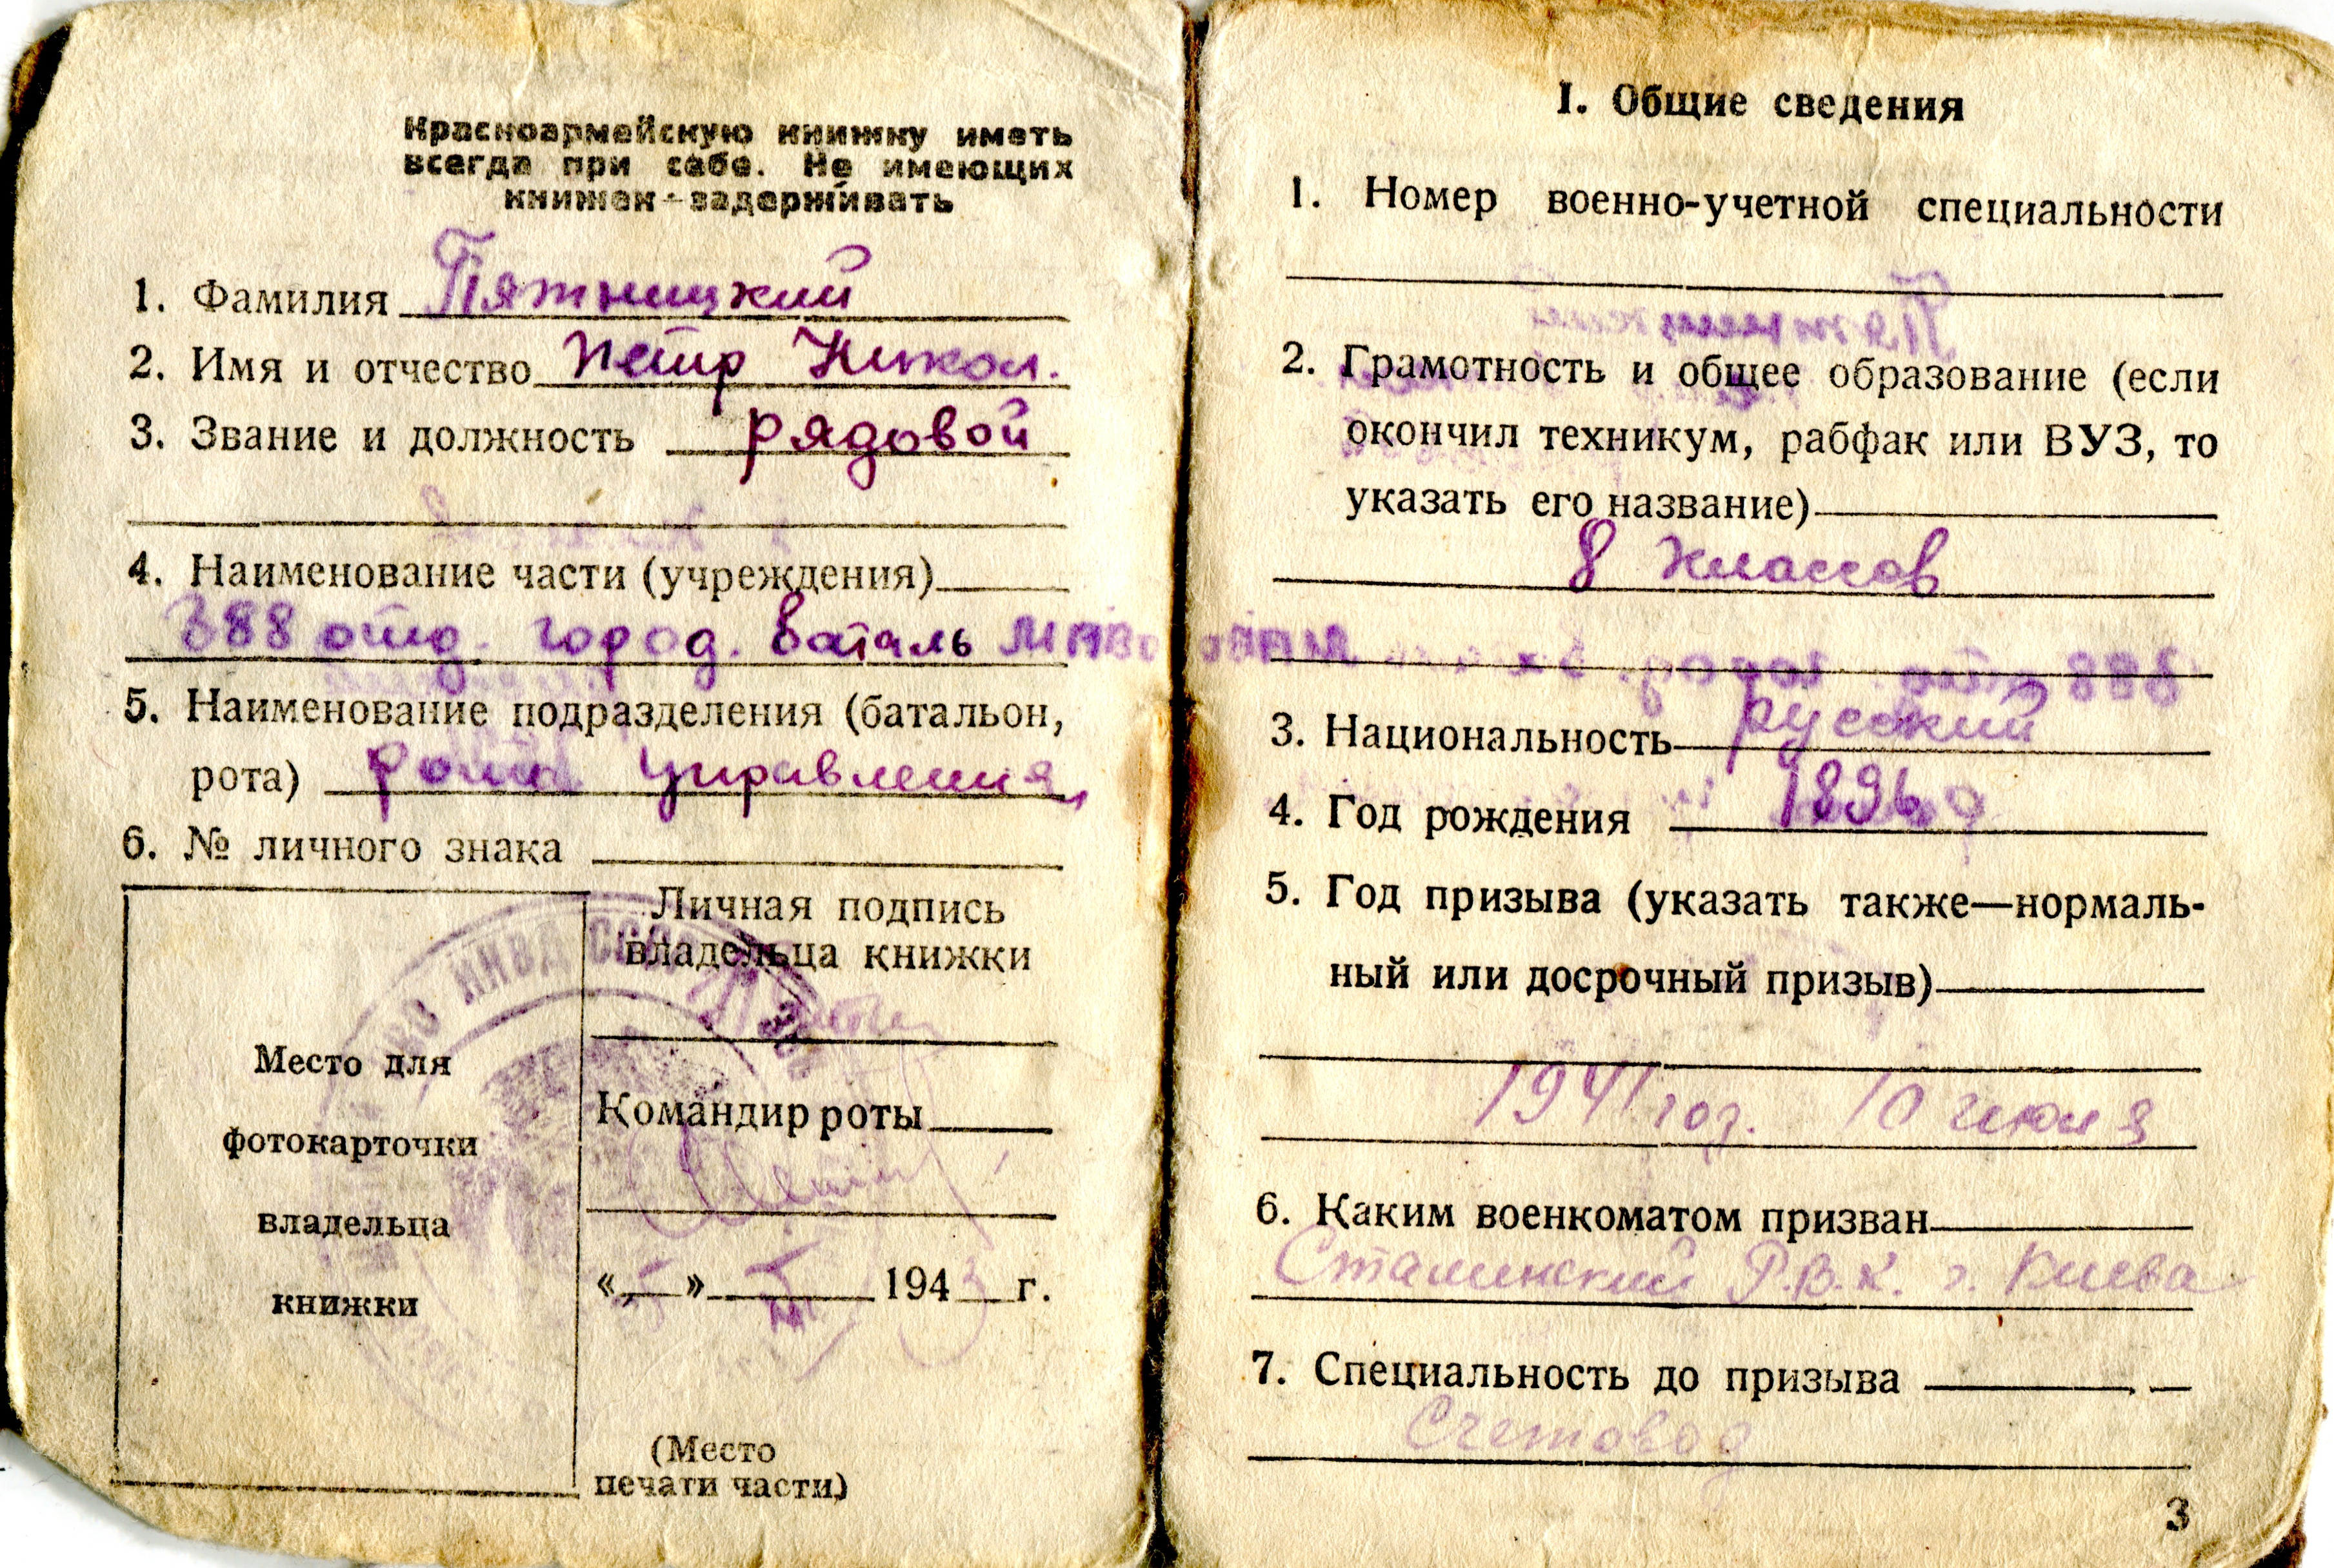 Красноармейскую книжку иметь
всегда при себе. Не имеющих
книжек - задерживать
1. Фамилия Пятницкий
2. Имя и отчество Петр Никол.
3. Звание и должность рядовой
4. Наименование части (учреждения)
388 отд. город. баталь МПВО
5. Наименование подразделения (батальон,
рота) рота управления
6. № личного знака
Личная подпись
владельца книжки
НКВД СССР
Место для
фотокарточки
владельца
книжки
Командир роты
« » 1943 г.
(Место
печати части)
I. Общие сведения
1. Номер военно-учетной специальности
2. Грамотность и общее образование (если
окончил техникум, рабфак или ВУЗ, то
указать его название)
8 классов
3. Национальность русский
4. Год рождения 1896
5. Год призыва (указать также—нормаль-
ный или досрочный призыв)
1941 год. 10 июля
6. Каким военкоматом призван
Сталинский Р.В.К. г. Киева
7. Специальность до призыва
Счетовод
3